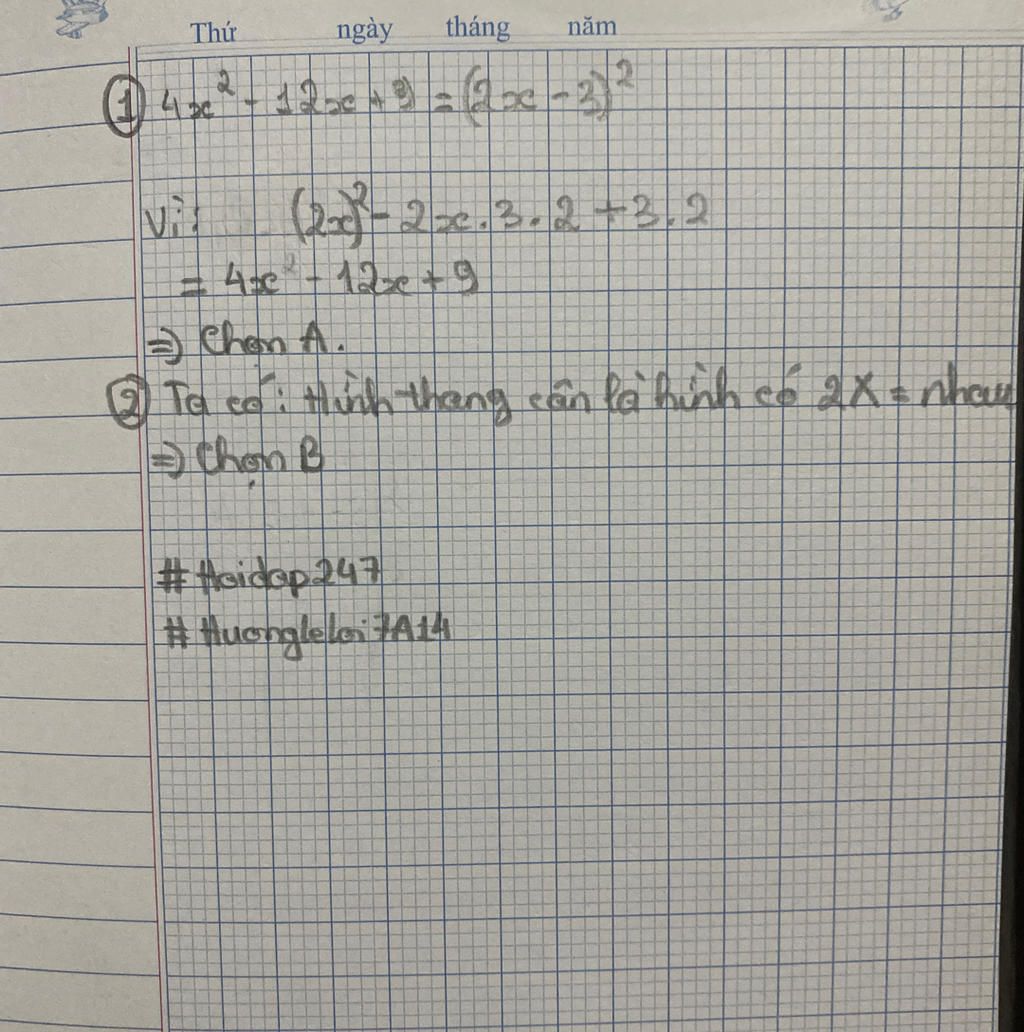 Thứ ngày tháng năm
① 4x² - 12x + 9 = (2x - 3)²
Vì: (2x)² - 2x.3.2 + 3.2
= 4x² - 12x + 9
=> Chọn A.
② Ta có: Hình thang cân là hình có 2X = nhau
=> Chọn B
# Hoidap247
# Huongleloi7A14